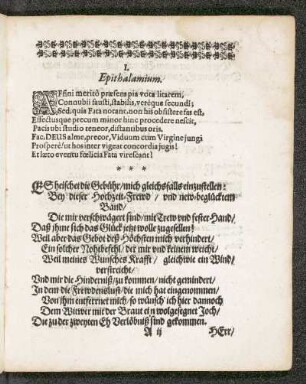 I.
Epithalamium.
AFfini meritò præsens pia vota litarem,
Connubii fausti, stabilis, veréque secundi;
Sed quia Fata nocant, non his obsistere fas est,
Effectusque precum minor hinc procedere nescit,
Pacis ubi studio teneor, distantibus oris.
Fac, DEUS alme, precor, Viduum cum Virgine jungi
Prosperè! ut hos inter vigeat concordia jugis!
Et læto eventu fœlicia Fata virescant!
* * *
ES heischet die Gebühr/ mich gleichsfalls einzustellen:
Bey dieser Hochzeit-Frewd / und new-beglücktem
Band/
Die mir verschwägert sind/ mit Trew und fester Hand/
Daß ihme sich das Glück jetzt wolle zugesellen!
Weil aber das Gebot deß Höchsten mich verhindert/
Ein solcher Nohtbefehl/ der mir und keinem weicht/
Weil meines Wunsches Krafft / gleichwie ein Wind/
verstreicht/
Und mir die Hinderniß/ zu kommen/ nicht gemindert/
In dem die Friwdenslust/ die mich hat eingenommen/
Von ihm entfernet mich/ so wünsch' ich hier dannoch
Dem Wiewer mit der Braut ein wolgesegnet Joch/
Die zu der zweyten Eh Verlöbniß sind gekommen.
A ij
HErr/